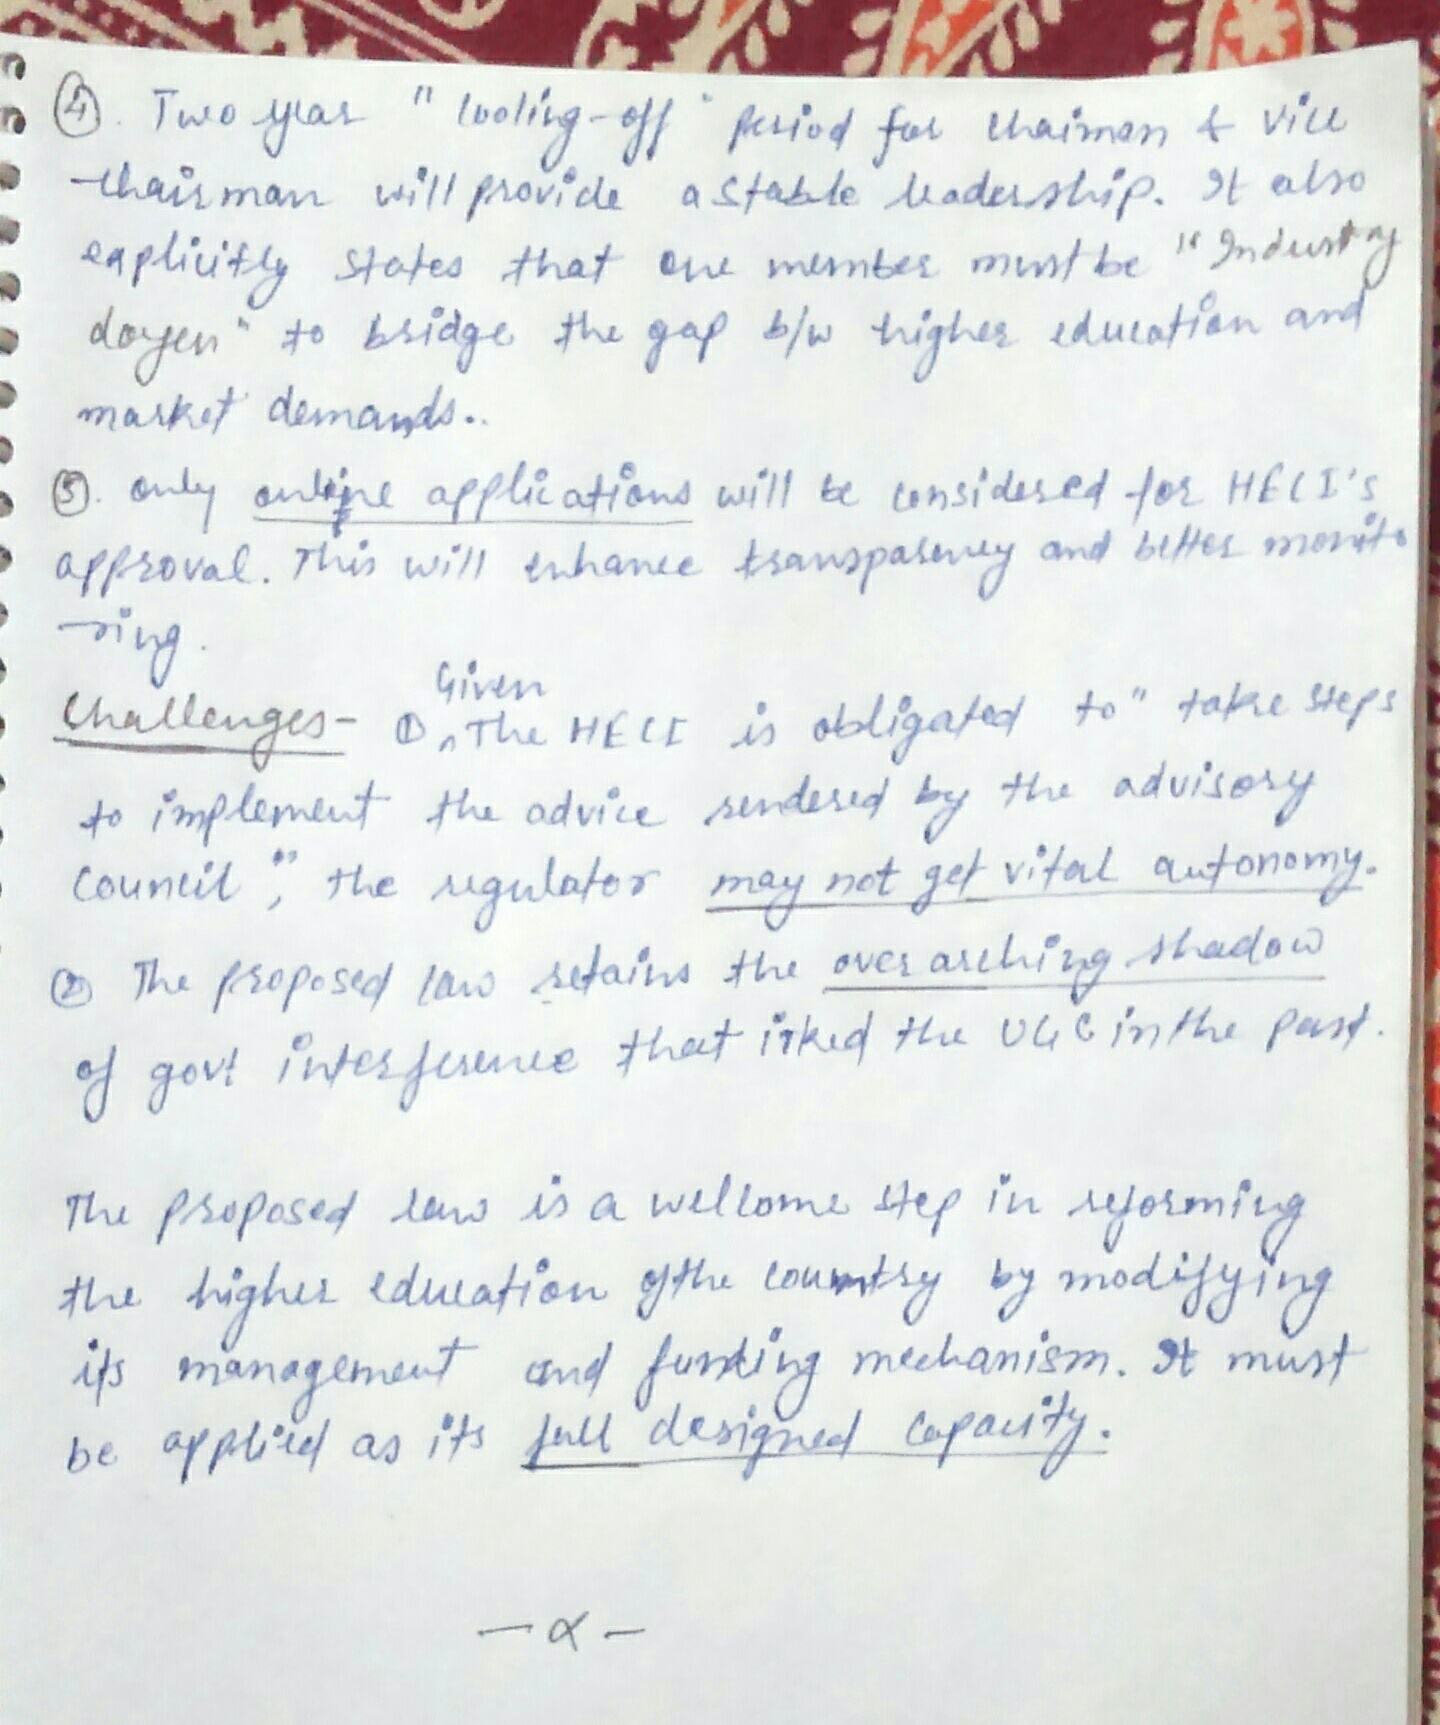 ④. Two year "cooling-off" period for chaiman & vice
chairman will provide a stable leadership. It also
explicitly states that one member must be "Industry
doyen" to bridge the gap b/w higher education and
market demands..
⑤. only online applications will be considered for HECI's
approval. This will enhance transparency and better monito
ring.
Given
Challenges- ① ^ The HECI is obligated to "take steps
to implement the advice rendered by the advisory
council", the regulator may not get vital autonomy.
② The proposed law retains the overarching shadow
of govt interference that irked the UGC in the past.
The proposed law is a wellcome step in reforming
the higher education of the country by modifying
its management and funding mechanism. It must
be applied as its full designed capacity.
— α —